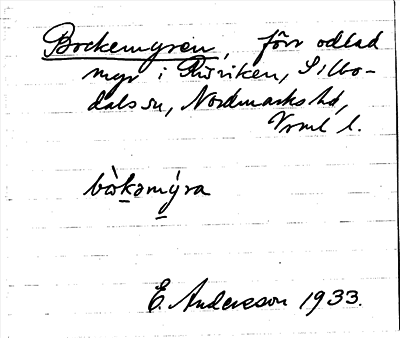 Bockemyren, förr odlad
myr i Röriken, Silbo-
dals sn, Nordmarks hd,
Vrml l.
bòkomýra
E. Andersson 1933.